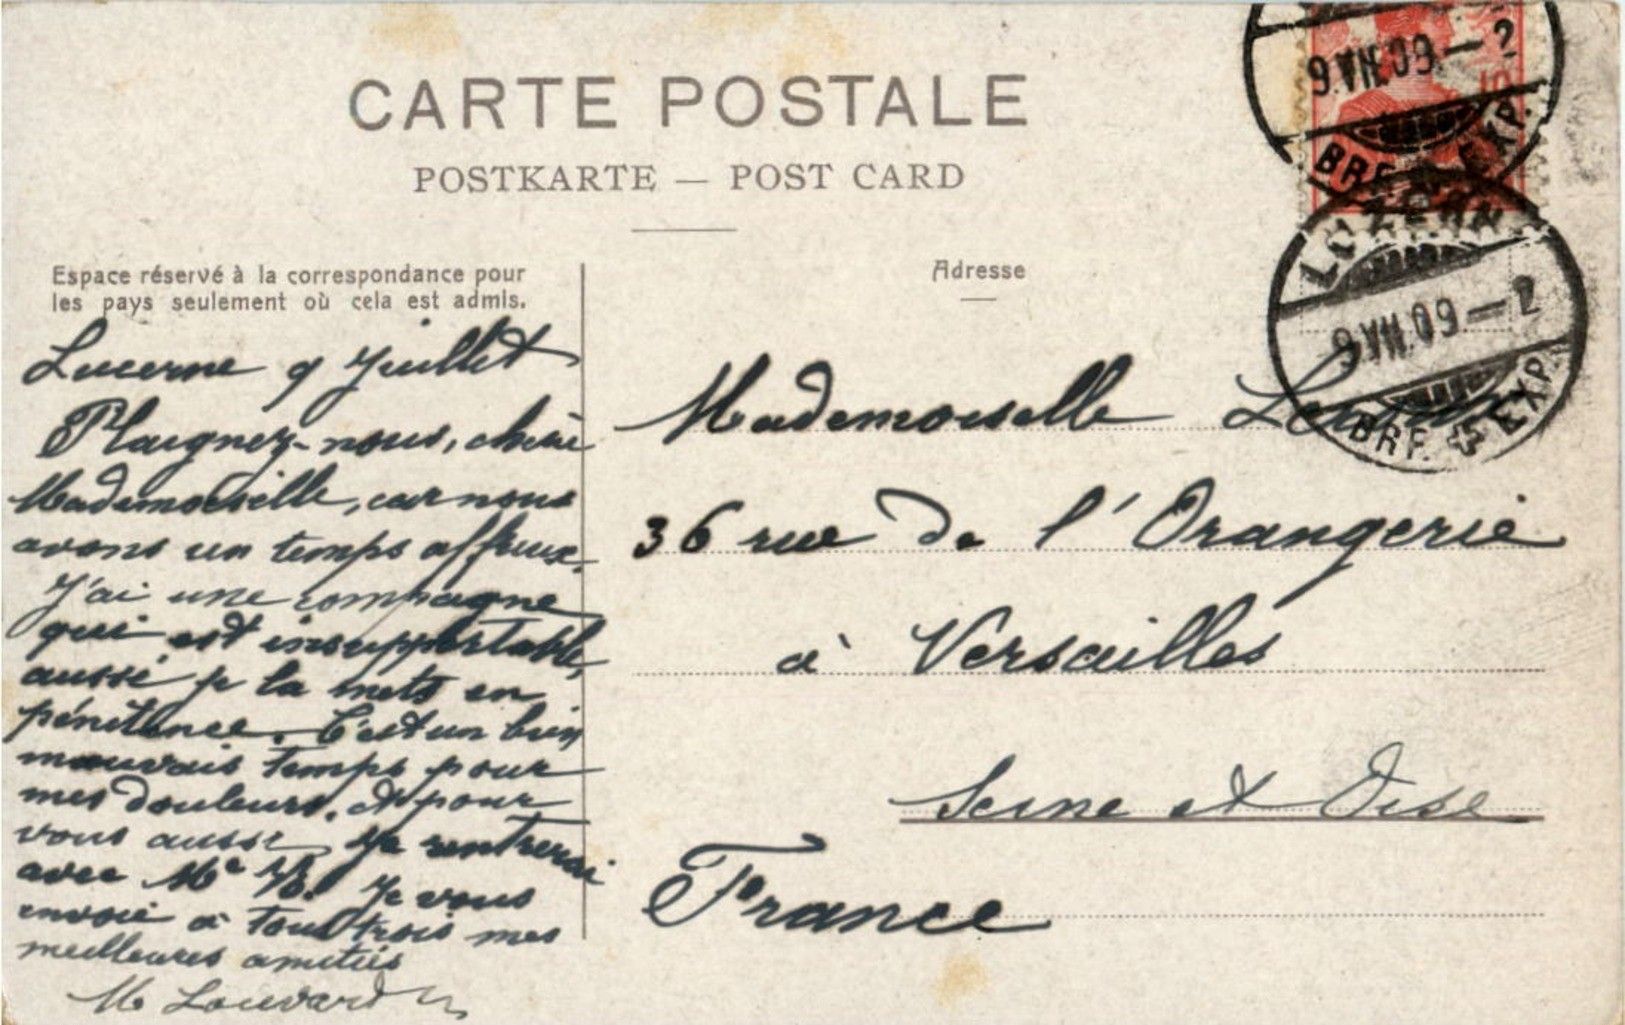 CARTE POSTALE
POSTKARTE — POST CARD
Espace réservé à la correspondance pour
les pays seulement où cela est admis.
Adresse
Lucerne 9 Juillet
Plaignez-nous, chère
Mademoiselle, car nous
avons un temps affreux.
J'ai une compagne
qui est insupportable,
aussi je la mets en
pénitence. C'est un bien
mauvais temps pour
mes douleurs, et pour
vous aussi. Je rentrerai
avec Me
Je vous
envoie à tous trois mes
meilleures amitiés
M Louvard
Mademoiselle
36 rue de l'Orangerie
à Versailles
Seine et Oise
France
9.VII.09—2
BRF. EXP.
LUZERN
9.VII.09—2
BRF. EXP.
10